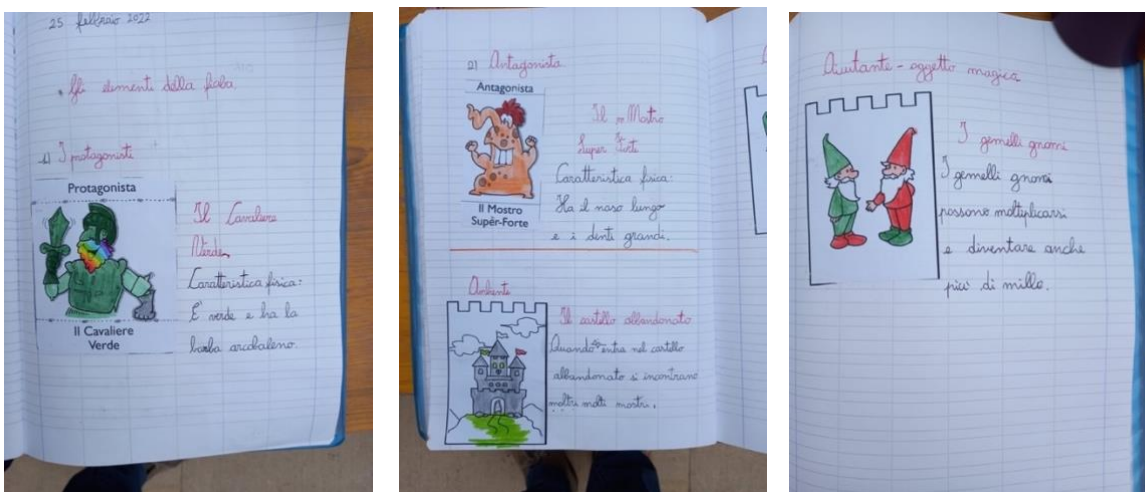 25 febbraio 2022
Gli elementi della fiaba
1) I protagonisti
Protagonista
Il Cavaliere
Verde
Il Cavaliere
Verde.
Caratteristica fisica:
E' verde e ha la
barba arcobaleno.
2) Antagonista
Antagonista
Il Mostro
Supèr-Forte
Il Mostro
Super Forte
Caratteristica fisica:
Ha il naso lungo
e i denti grandi.
Ambiente
Il castello abbandonato
Quando si entra nel castello
abbandonato si incontrano
moltri molti mostri.
Aiutante - oggetto magico
I gemelli gnomi
I gemelli gnomi
possono moltiplicarsi
e diventare anche
più di mille.